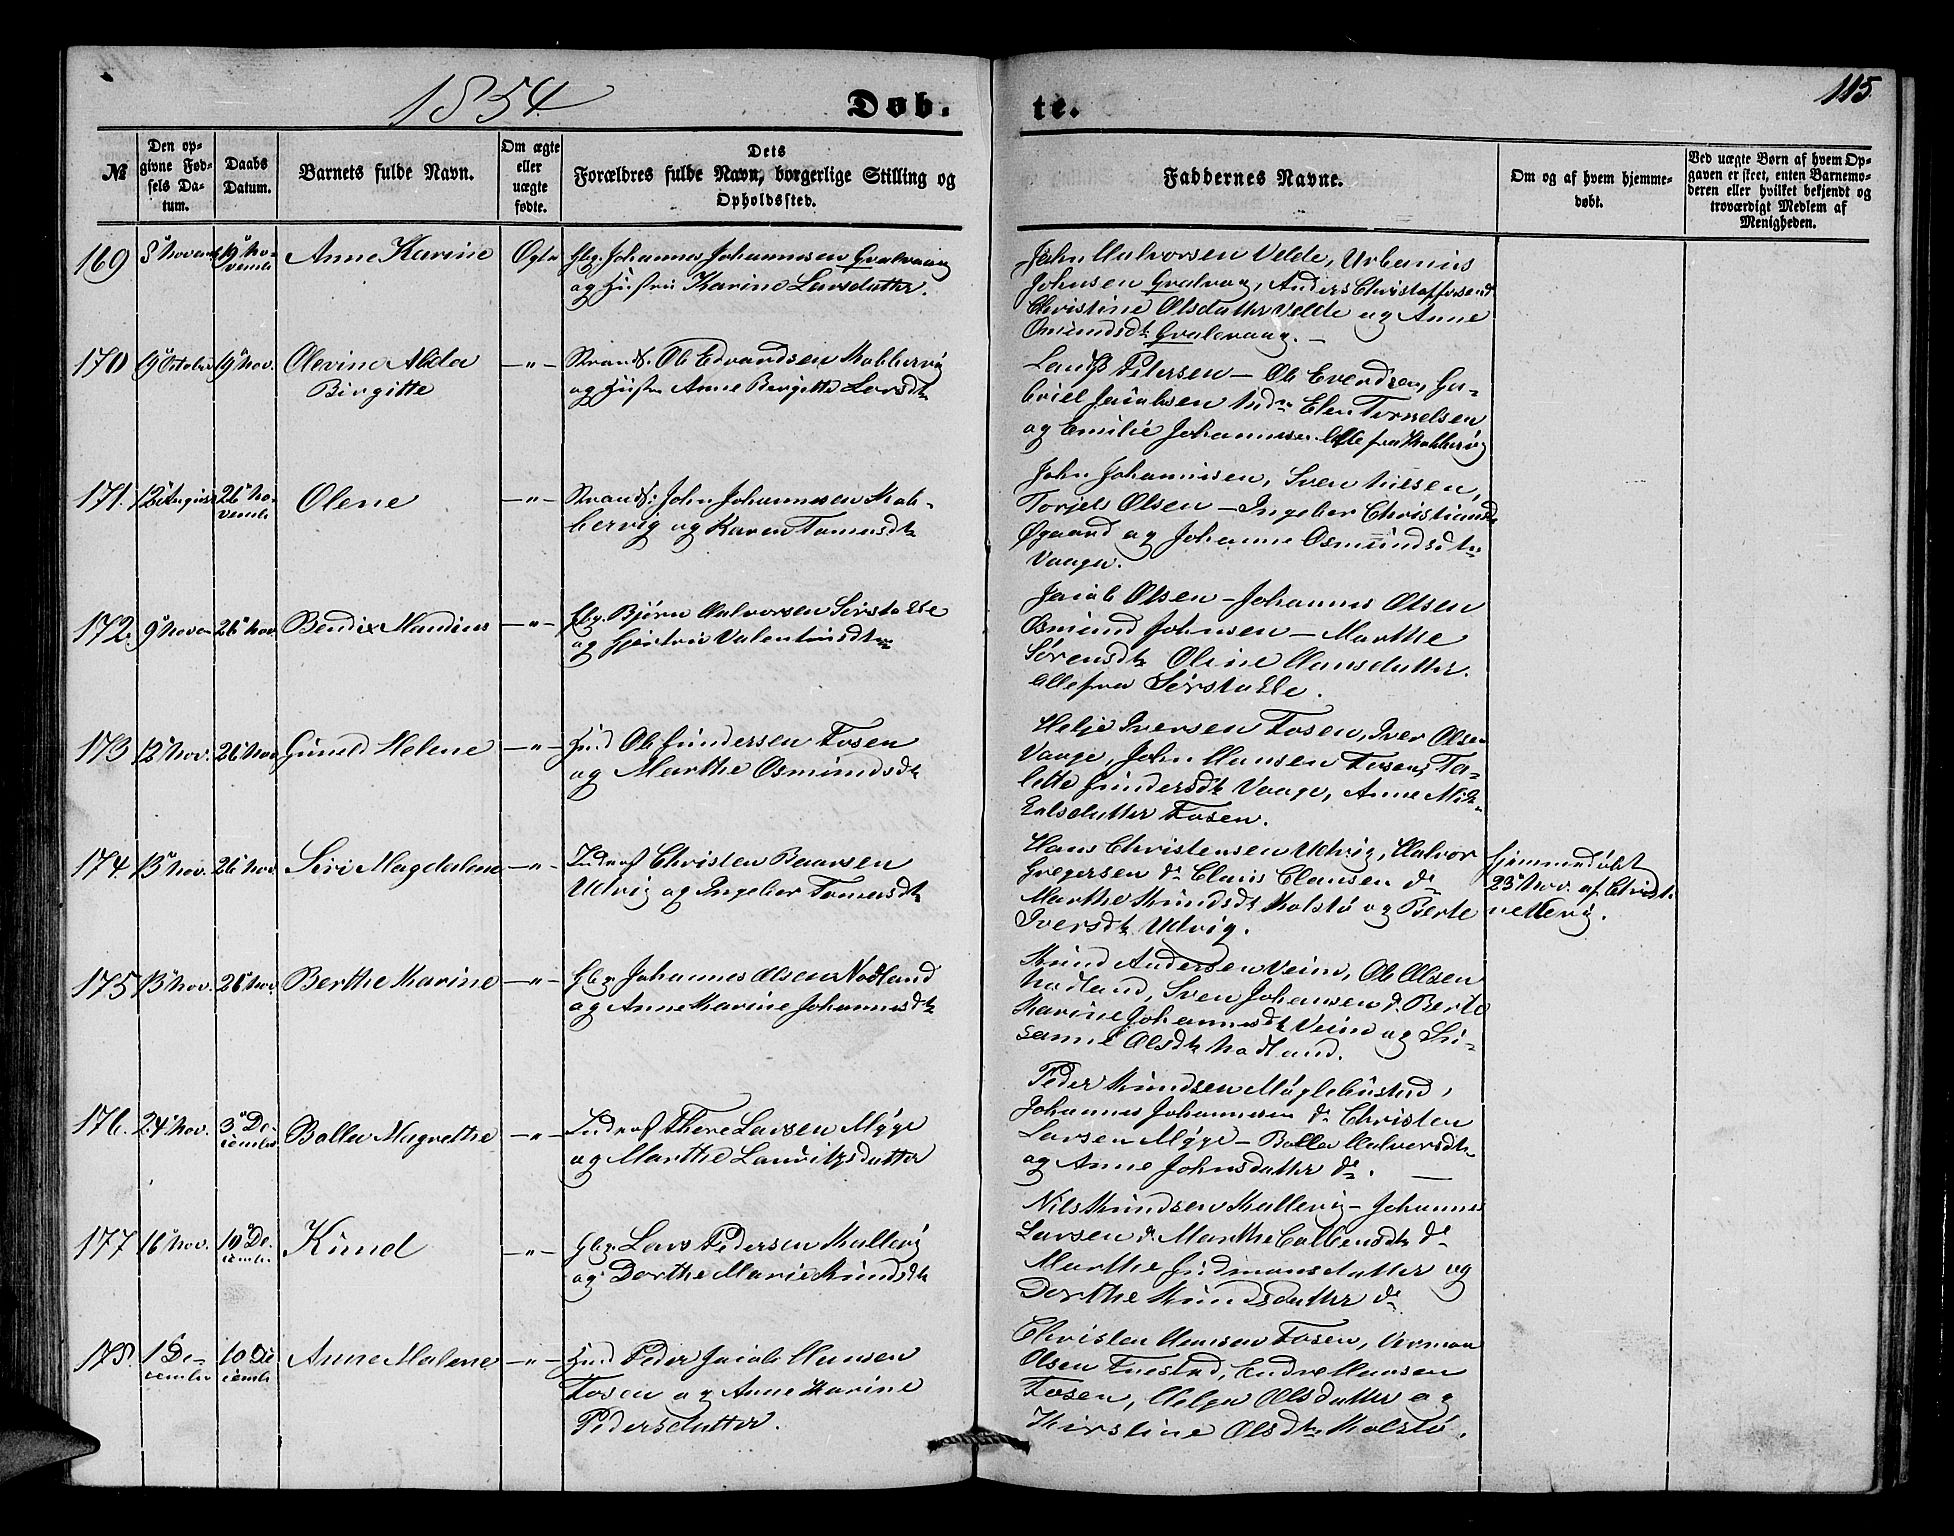 1854
Døb.
te.
115
№
Den op-
givne Fød-
sels Da-
tum.
Daabs
Datum.
Barnets fulde Navn.
Om ægte
eller
uægte
fødte.
Dets
Forældres fulde Navn, borgerlige Stilling og
Opholdssted.
Faddernes Navne.
Om og af hvem hjemme-
døbt.
Ved uægte Børn af hvem Op-
gaven er skeet, enten Barnemo-
deren eller hvilket bekjendt og
troværdigt Medlem af
Menigheden.
169
19 No-
vemb
Anne Karine
Ægte
Gbg. Johannes Johannesen Gralevaag
og Hustru Karine Larsdatter.
John Halvorsen Velde, Urbanius
Johnsen Gralvag, Anders Christoffersen d
Christine Olsdatter Velde og Anne
Osmundsdt Gralevaag. –
170
19 Nov.
Olevine Alida
Birgitte
–"–
Strands. Ole Edvardsen Kobbervig
og Hustr Anne Bergitte Larsdt
Petersen – Ole Evendsen, Ga-
briel Jacobsen
og Emilie Johannesen Alle fra Kobbervig
171.
12 August
26 No-
vemb
Olene
–"–
Strands: John Johannesen Kob-
bervig og Karen Tomasdt
John Johannesen, Sven Nilsen,
Torjels Olsen – Ingeber Christiansdt
Øgaard og Johanne Osmundsdtr
Vaage.
172.
9 Novem
26 Nov
Bendix Mandius
–"–
Gbg. Bjørn Halvorsen Sørstabbe
og Gjertru Valentinsdtr
Jacob Olsen – Johannes Olsen
Osmund Johnsen – Marthe
Sørensdt Oline Hansdatter.
Alle fra Sørstabbe.
173
12 Nov.
26 Nov
Guneld Helene
–"–
Huusm Ole Gundersen Fosen
og Marthe Osmundsdt
Helje Iversen Fosen, Iver Olsen
Vaage, John Hansen Fosen, Ta-
lette Gundersdt Vaage, Anne Mik-
kelsdatter Fosen.
174.
13 Nov.
26 Nov.
Siri Magdalene
–"–
Inderst Christen Baarsen
Udvig og Ingeber Tomasdt
Hans Christensen Udvig, Halvor
Gregersen do Claus Clausen do
Marthe Knudsdt Kolstø og Berte
Iversdt Udvig.
Hjemmedøbt
23 Nov. af Christi-
ne
175
13 Nov.
26 Nov.
Berthe Karine
–"–
Gbg. Johannes Olsen Nodland
og Anne Karine Johannesdt
Knud Andersen Veim, Ole Olsen
Nodland, Sven Johansen do Berte
Karine Johannesdt Veim og Su-
sanne Olsdt Nodland.
176.
24 Nov.
3 De-
cember
Bolla Magrethe
–"–
Inderst Thore Larsen Myge
og Marthe Lauritzsdatter
Peder Knudsen Møglebusted,
Johannes Johannesen do Christen
Larsen Myge – Bolla Halversdt
og Anne Johnsdatter do. –
177
16 Nov.
10 De-
cember
Knud
–"–
Gbg. Lars Pedersen Kallevig
og Dorthe Marie Knudsdt
Nils Knudsen Kallevig – Johannes
Larsen do Marthe Colbensdt do
Marthe Gudmansdatter og
Dorthe Knudsdatter do
178.
1 De-
cember
10 De
cemb
Anne Malene
–"–
Huusm Peder Jacob Hansen
Fosen og Anne Karine
Pedersdatter.
Christen Hansen Fosen, Verman
Olsen Fuestad, Endre Hansen
Fosen, Helga Olsdatter og
Kirstine Olsdtr Kolstø.